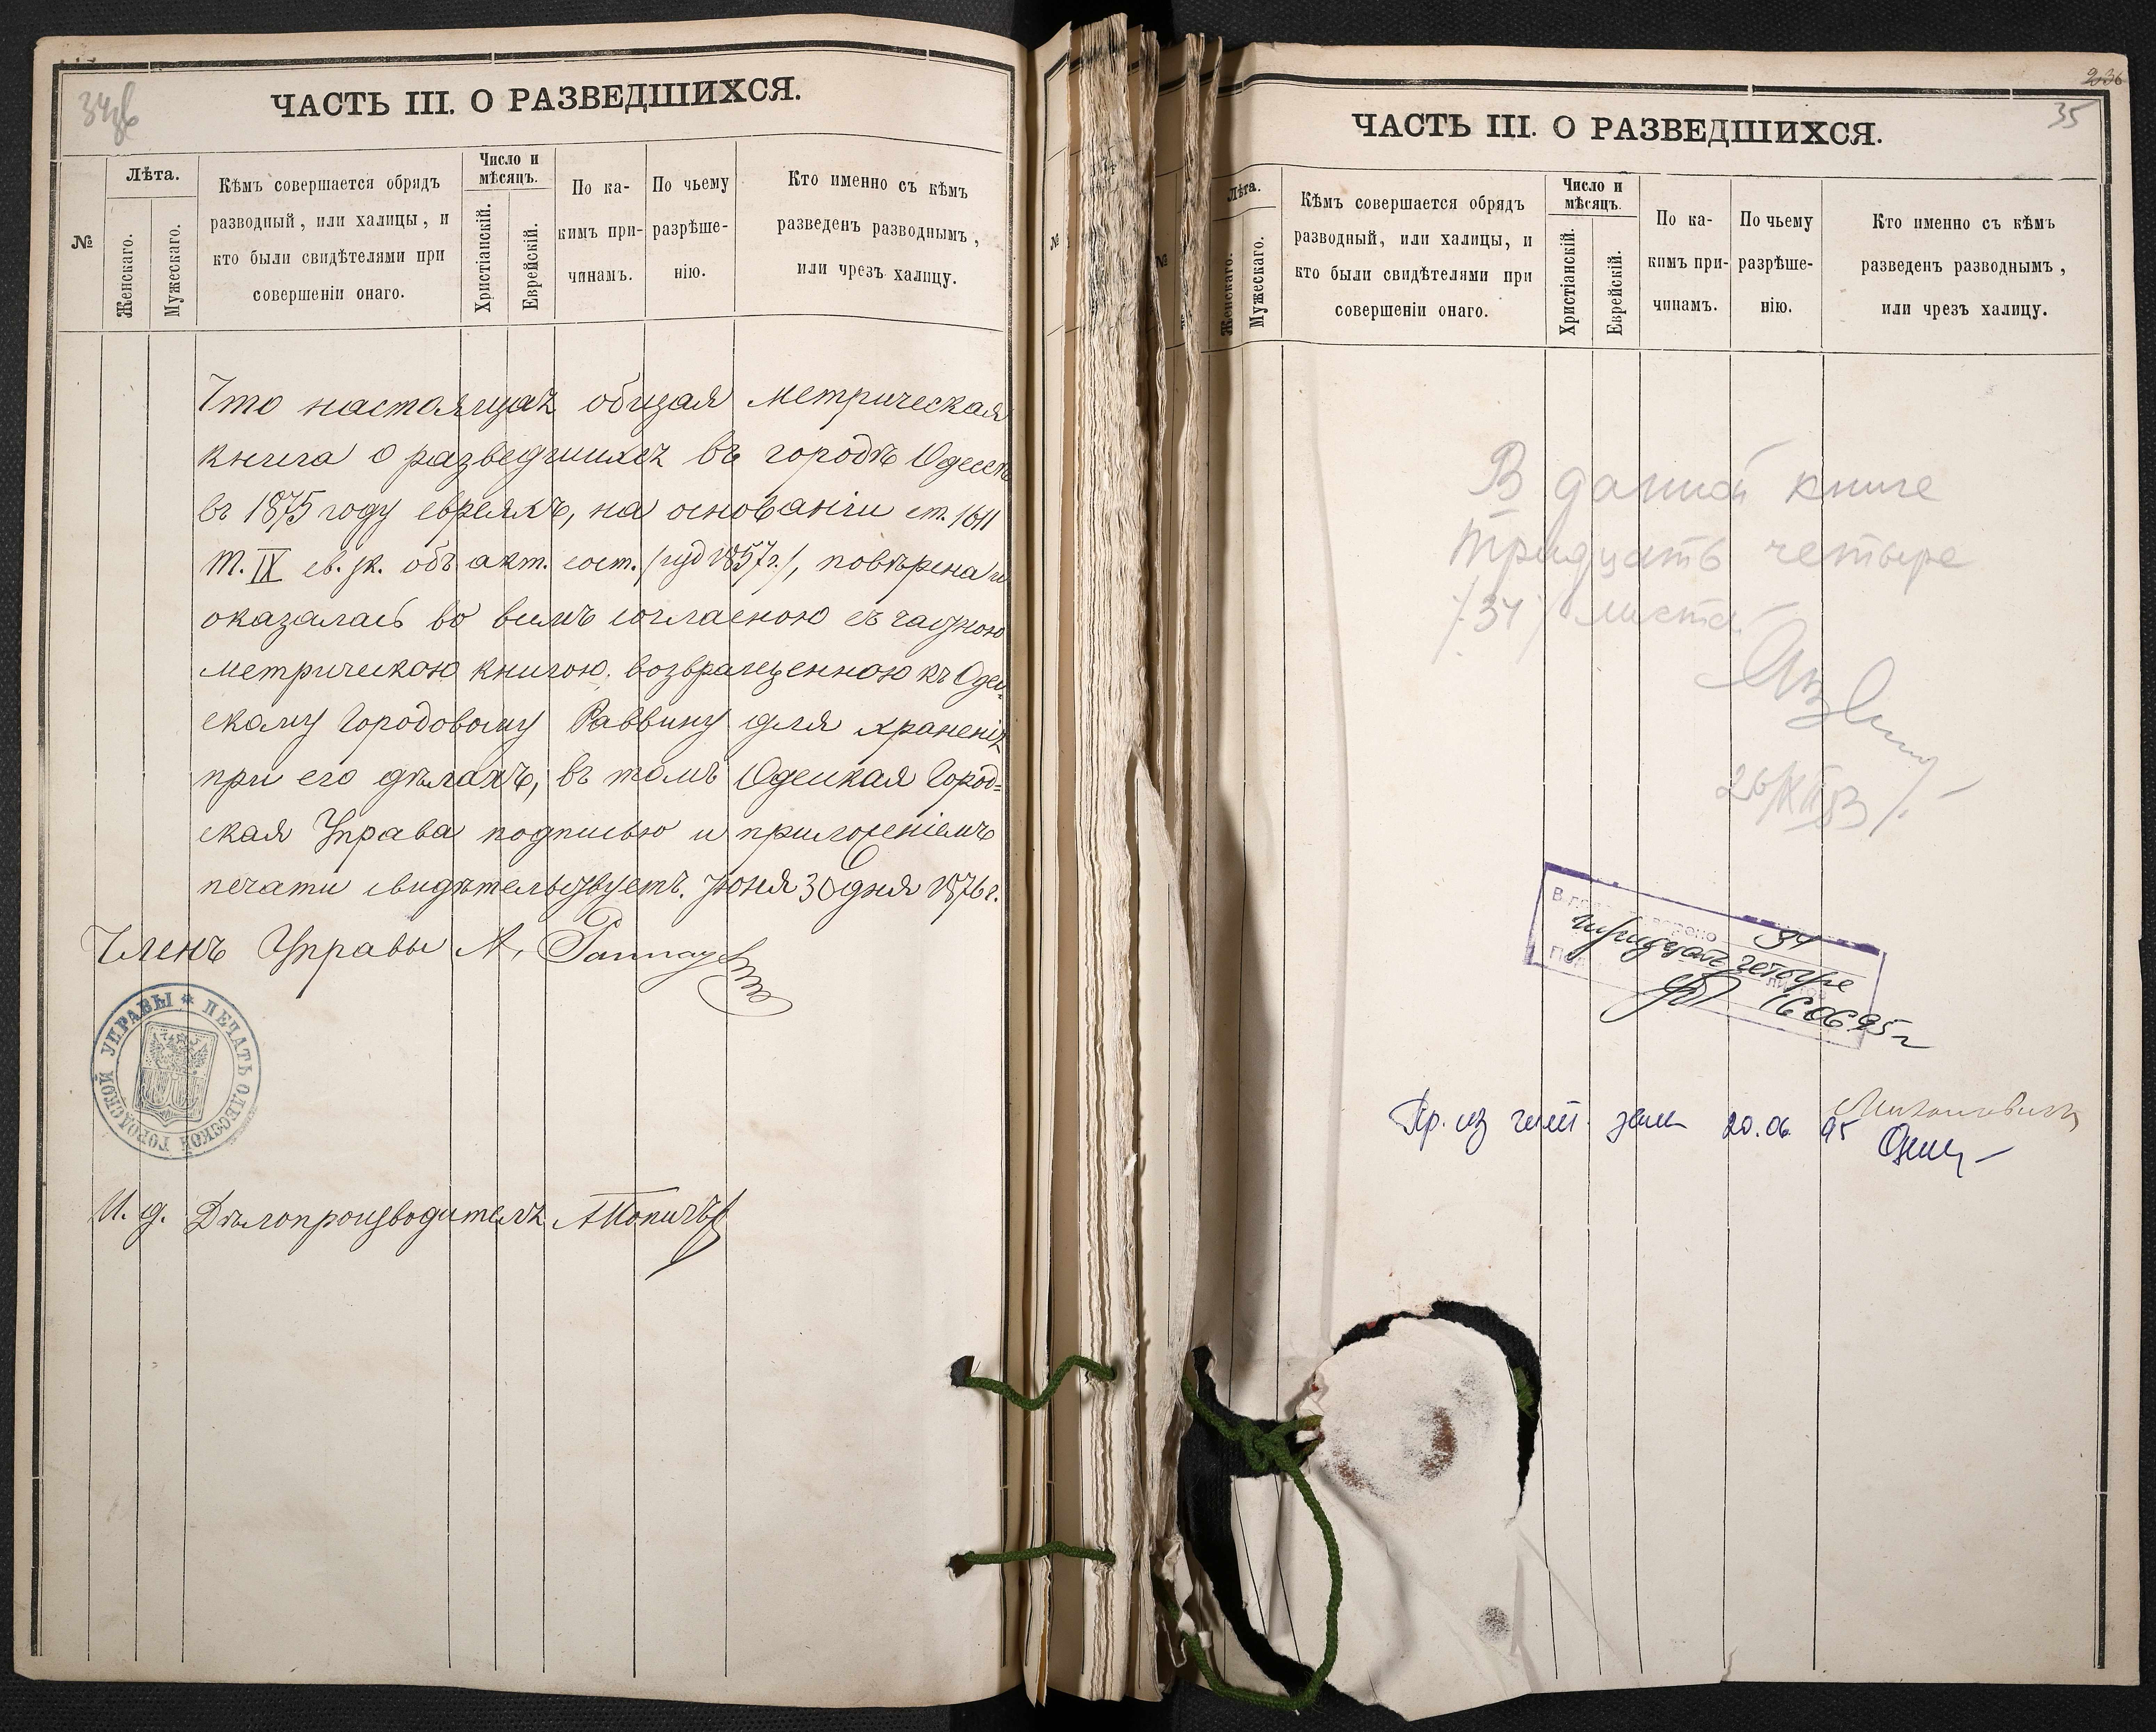 34об
ЧАСТЬ III. О РАЗВЕДШИХСЯ.
№
Лѣта.
Женскаго.
Мужескаго.
Кѣмъ совершается обрядъ
разводный, или халицы, и
кто были свидѣтелями при
совершеніи онаго.
Число и
мѣсяцъ.
Христіанскій.
Еврейскій.
По ка-
кимъ при-
чинамъ.
По чьему
разрѣше-
нію.
Кто именно съ кѣмъ
разведенъ разводнымъ,
или чрезъ халицу.
Что настоящая общая метрическая
книга о разведшихся въ городѣ Одессѣ
въ 1875 году евреяхъ, на основаніи ст. 1611
т. IX св. зк. объ акт. сост. /изд 1857г./, повѣрена и
оказалась во всемъ согласною съ частною
метрическою книгою, возвращенною къ Одес-
скому Городовому Раввину для храненія
при его дѣлахъ, въ томъ Одесская Город=
ская Управа подписью и приложеніемъ
печати свидѣтельствуетъ. Іюня 30 дня 1876 г.
Членъ Управы А.
ПЕЧАТЬ ОДЕССКОЙ ГОРОДСКОЙ УПРАВЫ
И. д. Дѣлопроизводителя
236
35
ЧАСТЬ III. О РАЗВЕДШИХСЯ.
№
Лѣта.
Женскаго.
Мужескаго.
Кѣмъ совершается обрядъ
разводный, или халицы, и
кто были свидѣтелями при
совершеніи онаго.
Число и
мѣсяцъ.
Христіанскій.
Еврейскій.
По ка-
кимъ при-
чинамъ.
По чьему
разрѣше-
нію.
Кто именно съ кѣмъ
разведенъ разводнымъ,
или чрезъ халицу.
В данной книге
тридцать четыре
/34/ листа
26/XII 53
34
тридцать четыре
листов
16 06 95 г
Пр. из чит. зала 20.06. 95